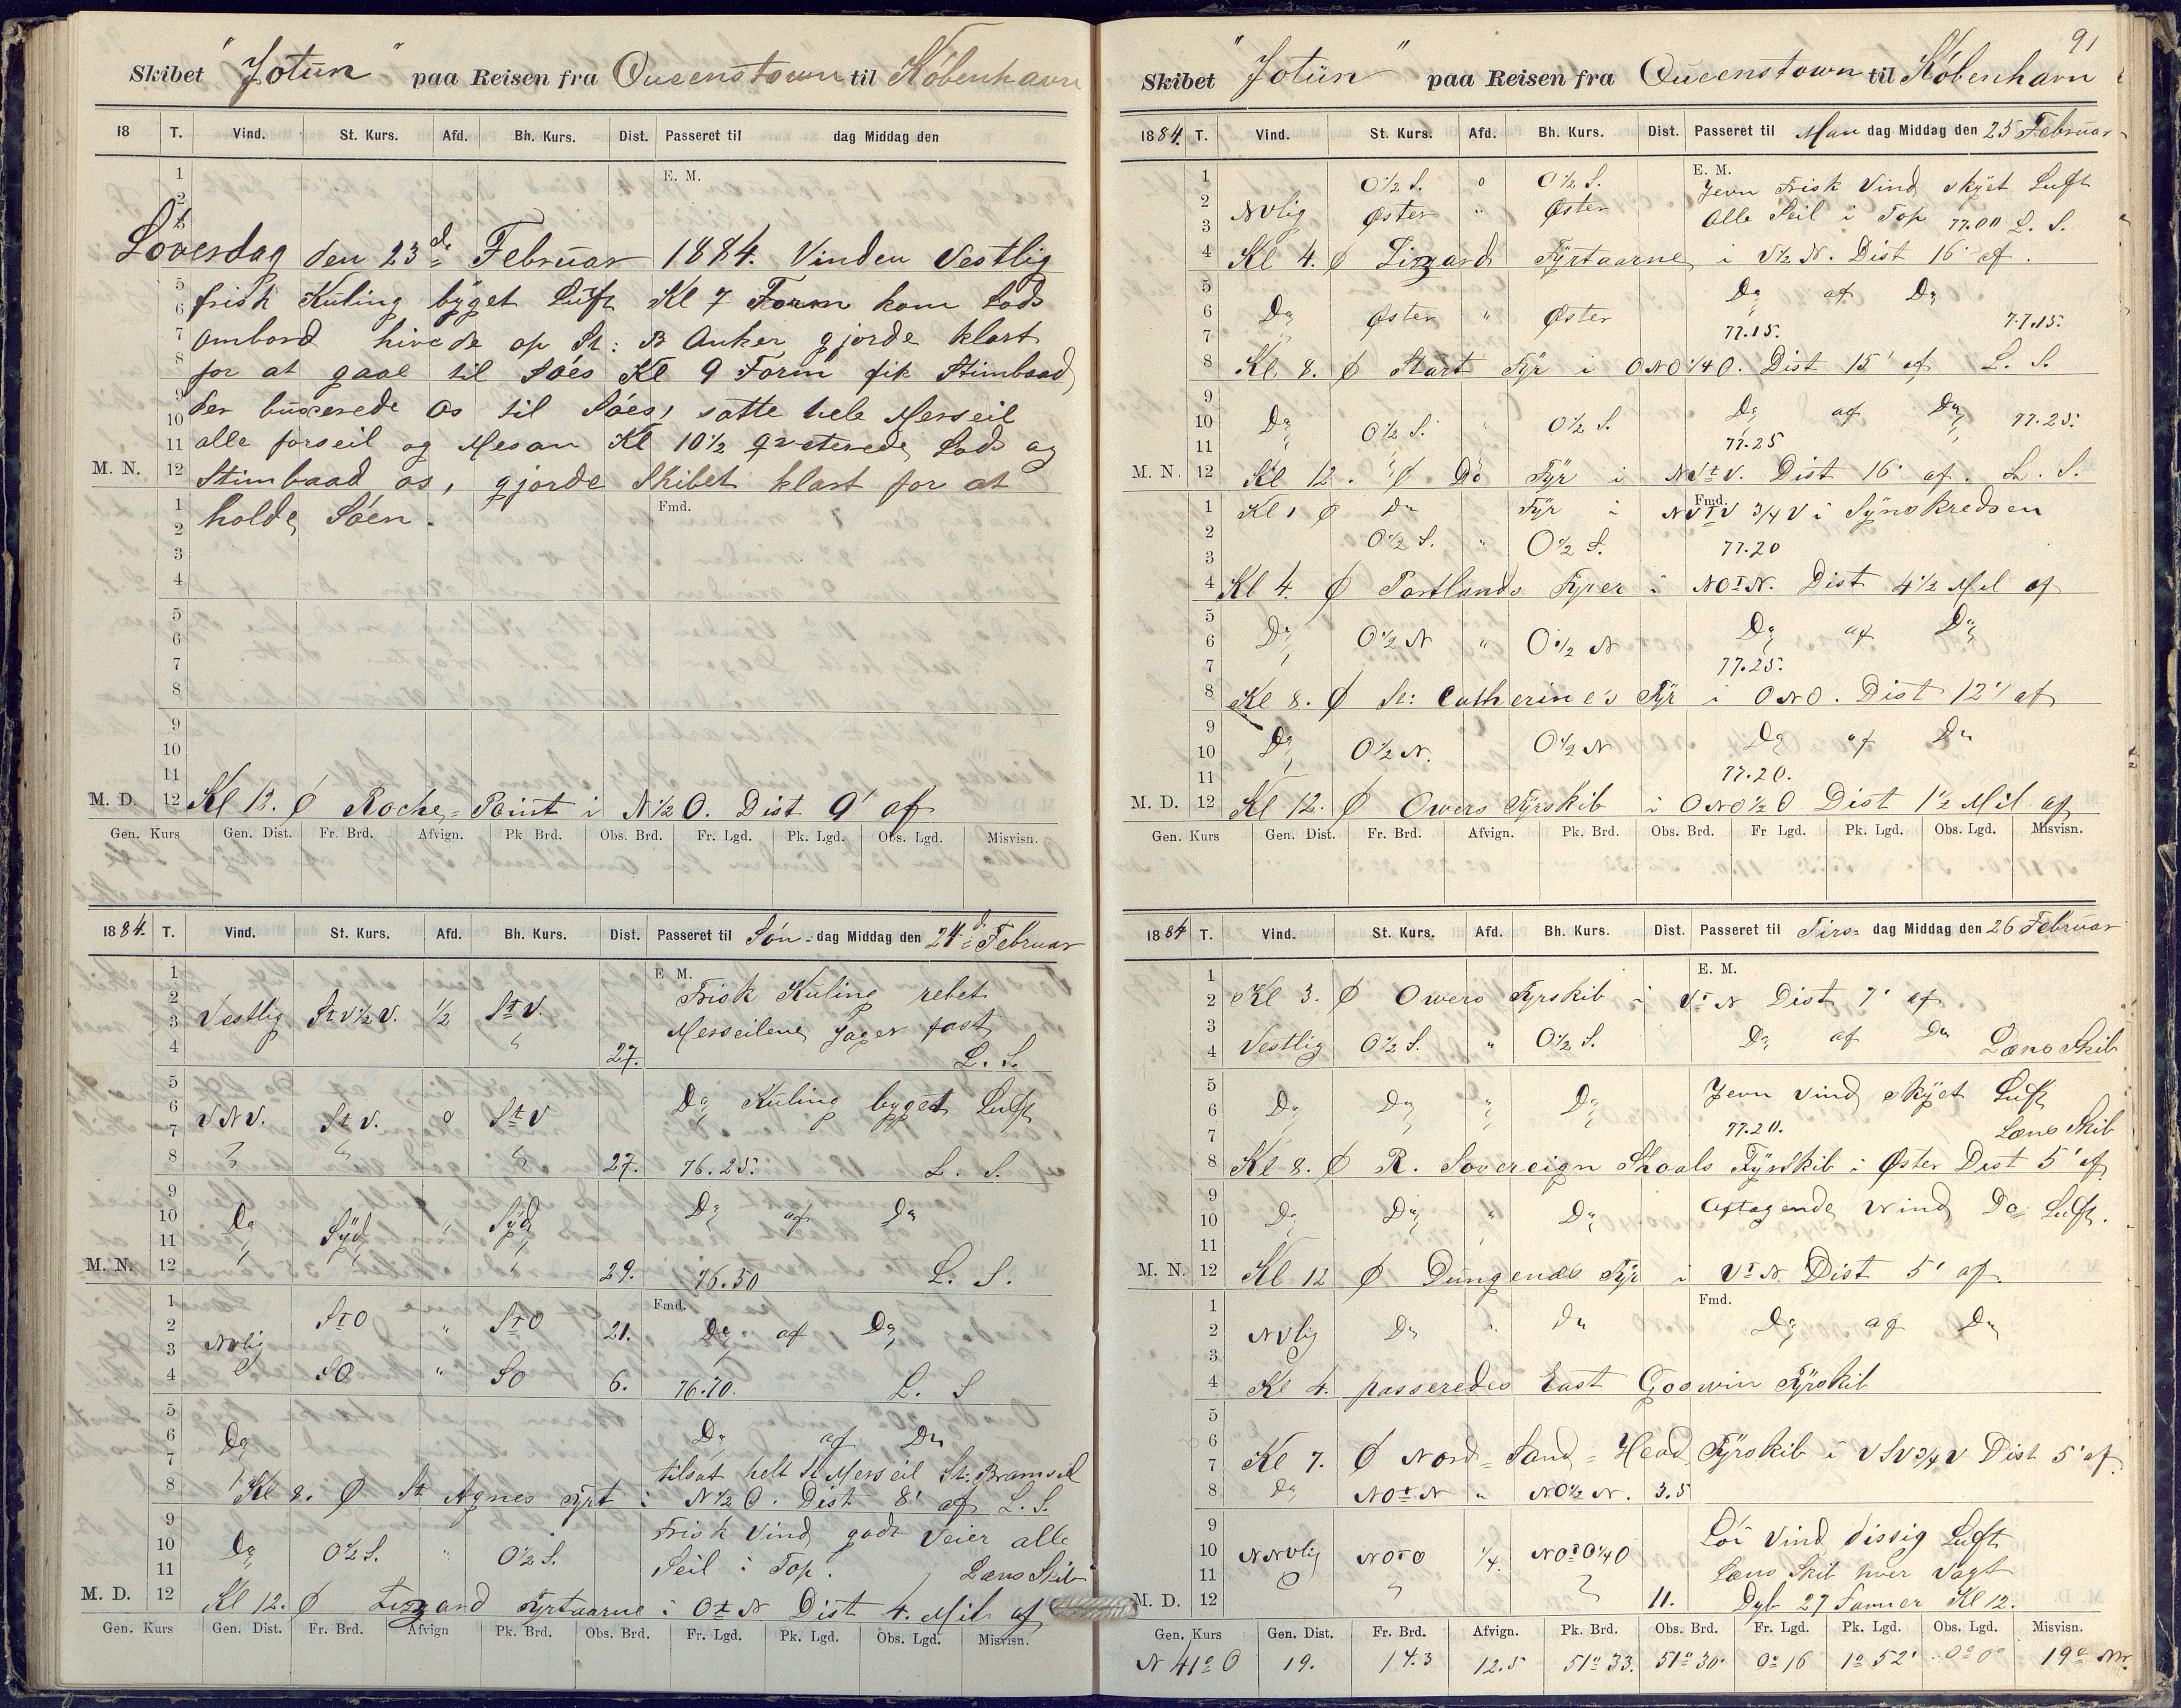 Skibet "Jotun" paa Reisen fra Queenstown til København
18 T. Vind. St. Kurs. Afd. Bh. Kurs. Dist. Passeret til dag Middag den
1 E. M.
2
3
Löverdag den 23de Februar 1884. Vinden Vestlig
5
6 frisk Kuling byget Luft Kl 7 Form kom Lods
7 ombord hivede op St: B Anker gjorde klart
8 for at gaae til Söes Kl 9 Form fik Stimbaad
9
10 der buxerede os til Söes, satte hele Merseil
11 alle forseil og Mesan Kl 10½ qveterede Lods og
M. N. 12 Stimbaad os, gjorde Skibet klart for at
1 holde Söen. Fmd.
2
3
4
5
6
7
8
9
10
11
M. D. 12 Kl 12. Ø Roche-Point i N½O. Dist 9' af
Gen. Kurs Gen. Dist. Fr. Brd. Afvign. Pk Brd. Obs. Brd. Fr. Lgd. Pk. Lgd. Obs. Lgd. Misvisn.
1884. T. Vind. St. Kurs. Afd. Bh. Kurs. Dist. Passeret til Sön-dag Middag den 24de Februar
1 E M.
2 Frisk Kuling rebet
3 Vestlig StV½V. ½ StV. Merseilene Jager fast
4 " 27. L. S.
5
6 Do Kuling byget Luft
7 VNV. StV. o StV
8 " " " 27. 76.25. L. S.
9
10 Do Syd " Syd Do af Do
11
M. N. 12 29. 76.50 L. S.
1 Fmd.
2 StO " StO 21. Do af Do
3 NVlig
4 SO " SO 6. 76.70. L. S
5
6 Do Do af Do
7 tilsat helt St Merseil St: Bramseil
8 Kl 8. Ø St Agnes Fyrt i N½O. Dist 8' af L. S.
9 Frisk Vind godt Veier alle
10 Do O½S. " O½S.
11 Seil i Top. Læns Skib
M. D. 12 Kl 12. Ø Lizzard Fyrtaarne i OtN Dist 4. Mil af
Gen. Kurs Gen. Dist. Fr. Brd. Afvign Pk. Brd. Obs. Brd. Fr. Lgd. Pk. Lgd. Obs. Lgd. Misvisn.
91
Skibet "Jotun" paa Reisen fra Queenstown til København
1884. T. Vind. St. Kurs. Afd. Bh. Kurs. Dist. Passeret til Man dag Middag den 25 Februar
1 O½S. o O½S. E. M. Jevn Frisk Vind skyet Luft
2 NVlig Øster " Øster
3 Alle Seil i Top 77.00 L. S.
4 Kl 4. Ø Lizzard Fyrtaarne i V½N. Dist 16' af.
5 Do af Do
6 Do Øster " Øster
7 77.15. 77.15.
8 Kl. 8. Ø Start Fyr i ONO¼O. Dist 15' af L. S.
9
10 Do O½S. " O½S. Do af Do 77.25.
11 77.25
M. N. 12 Kl 12. Ø Do Fyr i NVtV. Dist 16' af. L. S.
1 Kl 1 Ø Do Fyr i Fmd. NVtV ¾V i Synskredsen
2 O½S. " O½S.
3 77.20
4 Kl 4. Ø Portlands Fyer i NOtN. Dist 4½ Mil af
5
6 Do O½N " O½N Do af Do
7 77.25.
8 Kl 8. Ø St: Catherine's Fyr i ONO. Dist 12' af
9
10 Do O½N. O½N Do af Do
11 77.20.
M. D. 12 Kl 12. Ø Owers Fyrskib i ONO½O Dist 1½ Mil af
Gen. Kurs Gen. Dist. Fr. Brd. Afvign. Pk. Brd. Obs. Brd. Fr Lgd. Pk. Lgd. Obs. Lgd. Misvisn.
1884 T. Vind. St. Kurs. Afd. Bh. Kurs. Dist. Passeret til Tirs- dag Middag den 26 Februar
1 E. M.
2 Kl 3. Ø Owers Fyrskib i VtN Dist 7' af
3
4 Vestlig O½S. " O½S. Do af Do Læns Skib
5
6 Do Do " Do Jevn Vind skyet Luft
7 77.20. Læns Skib
8 Kl 8. Ø R. Sovereign Shoals Fyrskib i Øster Dist 5' af
9
10 Do Do " Do Aftagende Wind Do Luft.
11
M. N. 12 Kl 12 Ø Dungenæs Fyr i VtN. Dist 5' af
1 Fmd.
2 NVlig Do " Do Do af Do
3
4 Kl 4. passeredes East Goswin Fyrskib
5
6
7 Kl 7. Ø Nord-Sand-Head Fyrskib i VSV¾V Dist 5' af
8 Do NOtN " NO½N. 3.5
9 Löi Vind dissig Luft
10 NNVlig NOtO ¼. NOtO¼O
11 Læns Skib hver Vagt
M. D. 12 " " 11. Dyb 27 Favner Kl 12.
Gen. Kurs Gen. Dist. Fr. Brd. Afvign. Pk. Brd. Obs. Brd. Fr. Lgd. Pk. Lgd. Obs. Lgd. Misvisn.
N 41° O 19. 14.3 12.5 51° 33. 51° 30' 0° 16 1° 52' 0° 0° 19°